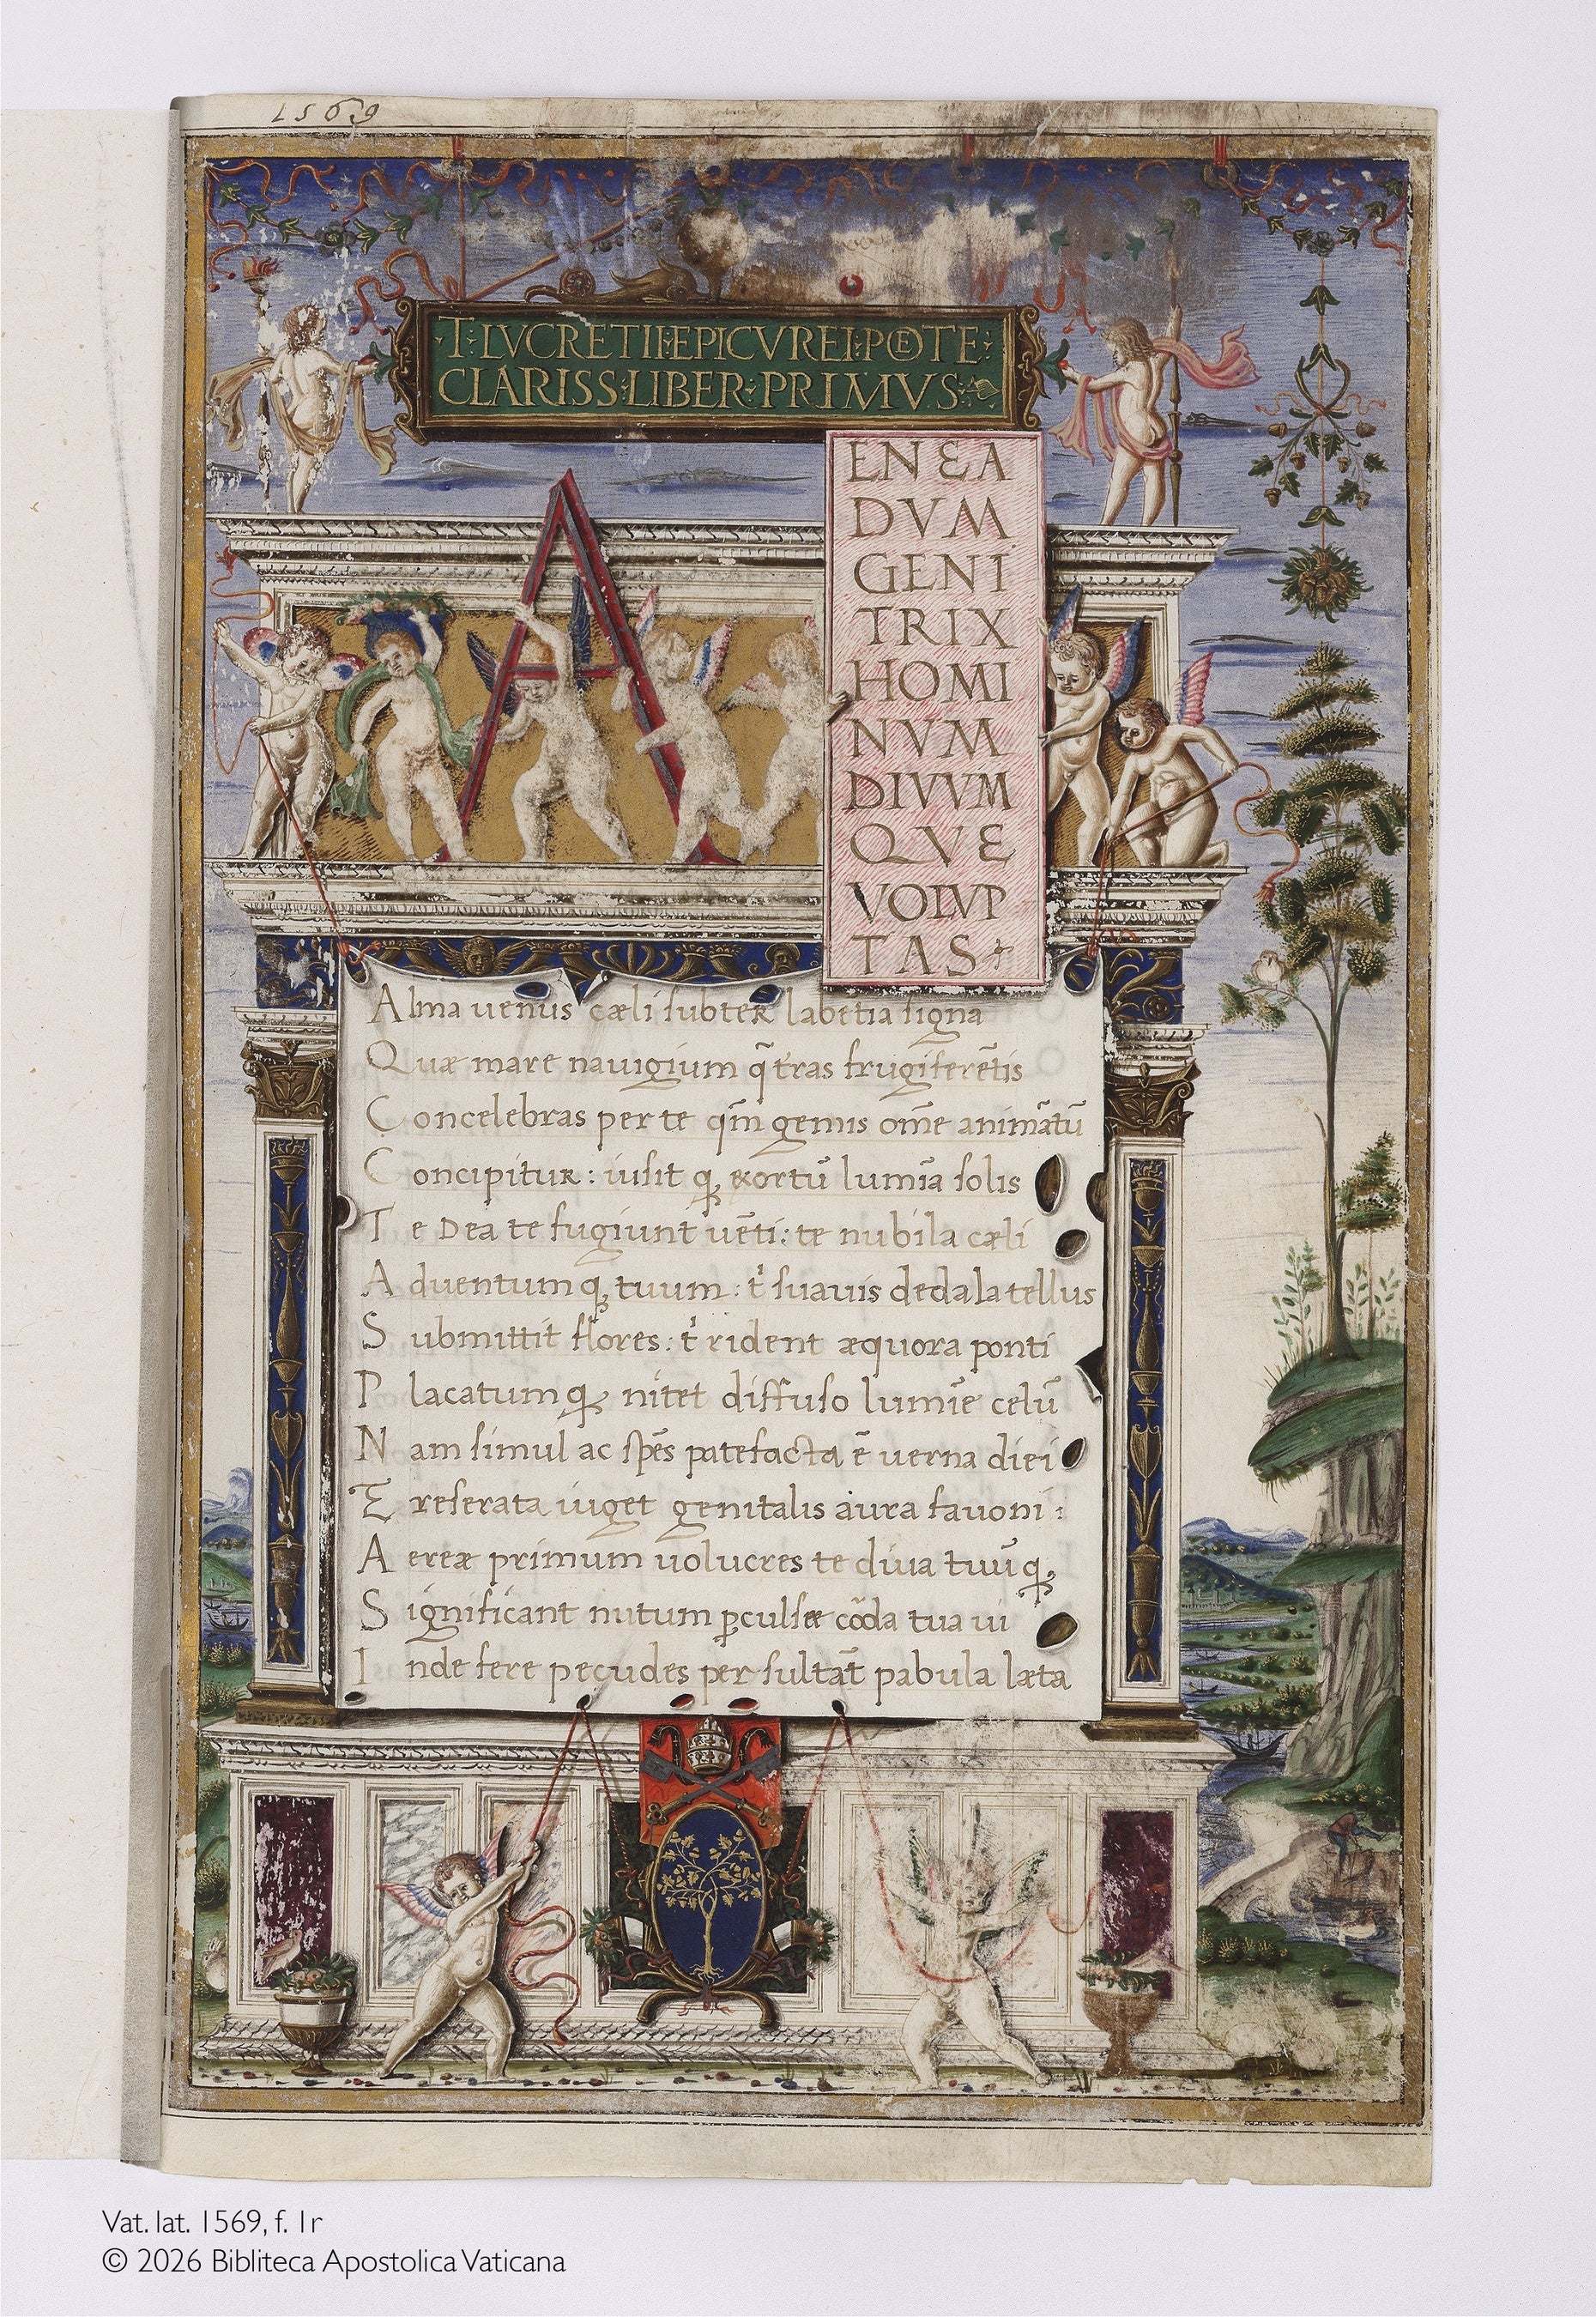 1569
·T·LVCRETII·EPICVREI·POETE·
CLARISS·LIBER·PRIMVS·
A
ENEA
DVM
GENI
TRIX
HOMI
NVM
DIVVM
QVE
VOLVP
TAS
Alma uenus cæli subter labētia signa
Quæ mare nauigium q̄ t̄ras frugiferētis
Concelebras per te qm̄ genus om̄e animātū
Concipitur: uisit q; exortū lumīa solis
Te Dea te fugiunt uēti: te nubila cæli
Aduentumq; tuum: t' suauis dedala tellus
Submittit flores: t' rident æquora ponti
Placatumq; nitet diffuso lumīe celū
Nam simul ac sp̄es patefacta ē uerna diei
Et reserata uiget genitalis aura fauoni:
Aereæ primum uolucres te diua tuūq;
Significant nutum ꝑculsæ cōda tua ui
Inde fere pecudes per sultāt pabula læta
Vat. lat. 1569, f. 1r
© 2026 Bibliteca Apostolica Vaticana